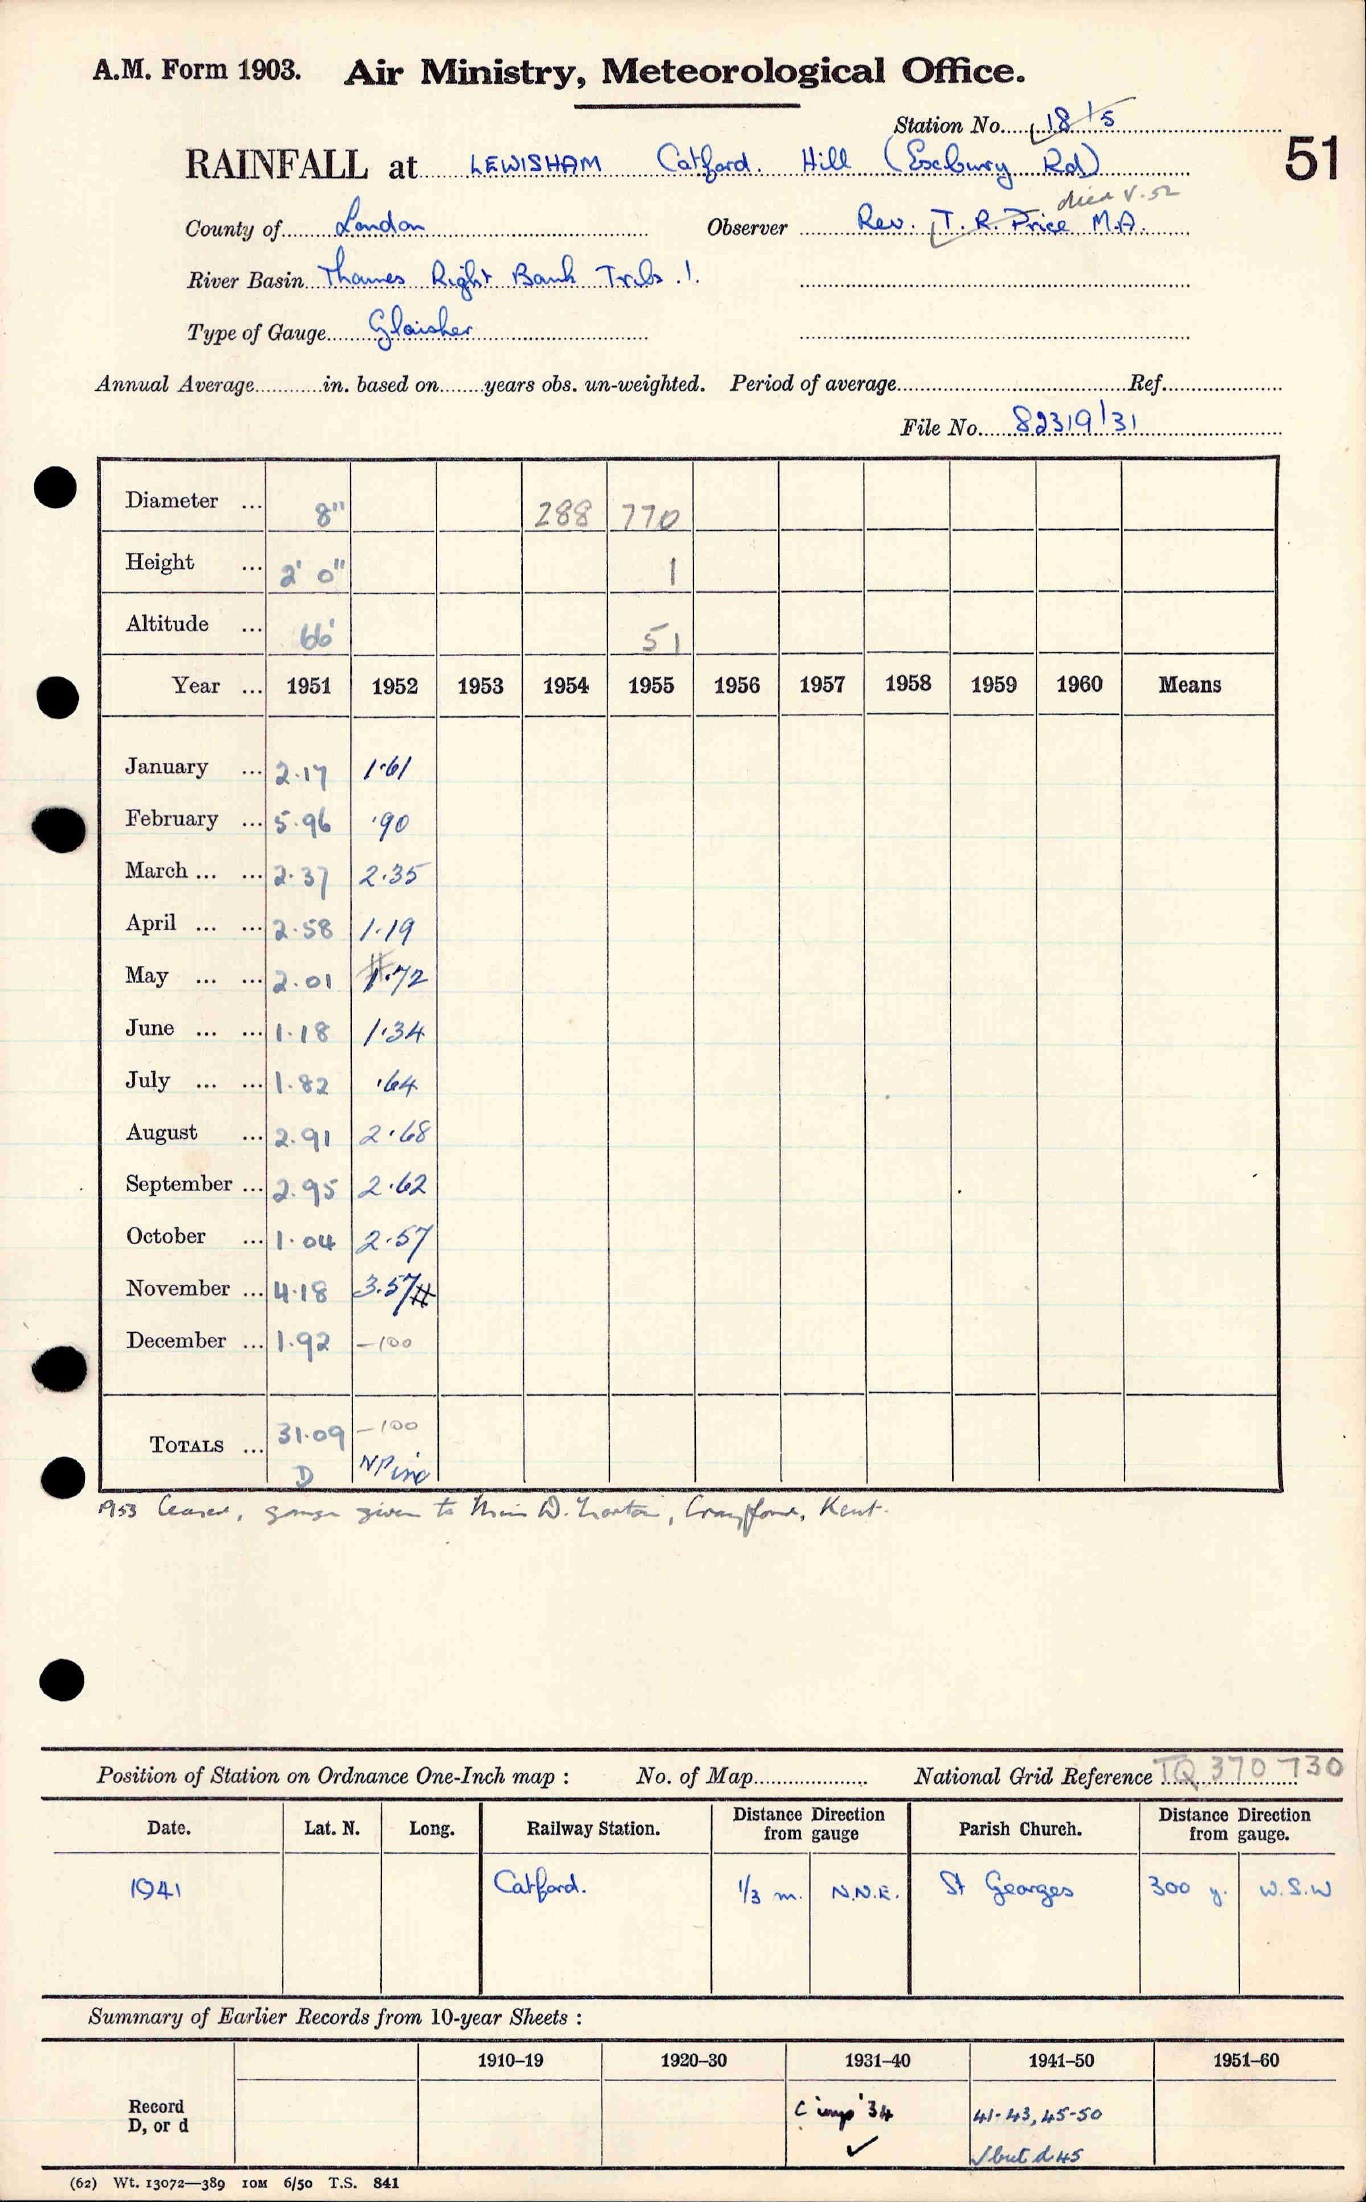 A.M. Form 1903. Air Ministry, Meteorological Office.
Station No. 18/5
51
RAINFALL at LEWISHAM Catford. Hill (Exbury Rd)
died V.52
County of London Observer Rev. T. R. Price M.A.
River Basin Thames Right Bank Tribs.
Type of Gauge Glaisher
Annual Average in. based on years obs. un-weighted. Period of average Ref.
File No. 82319/31
Diameter ... 8" 288 770
Height ... 2' 0" 1
Altitude ... 66' 51
Year ... 1951 1952 1953 1954 1955 1956 1957 1958 1959 1960 Means
January ... 2.17 1.61
February ... 5.96 .90
March ... ... 2.37 2.35
April ... ... 2.58 1.19
May ... ... 2.01 #1.72
June ... ... 1.18 1.34
July ... ... 1.82 .64
August ... 2.91 2.68
September ... 2.95 2.62
October ... 1.04 2.57
November ... 4.18 3.57#
December ... 1.92 -100
TOTALS ... 31.09 -100
D NP inc
1953 Ceased, gauge given to Miss D. Norton, Crayford, Kent.
Position of Station on Ordnance One-Inch map : No. of Map National Grid Reference TQ 370 730
Date. Lat. N. Long. Railway Station. Distance Direction from gauge Parish Church. Distance Direction from gauge.
1941 Catford. 1/3 m. N.N.E. St Georges 300 y. W.S.W
Summary of Earlier Records from 10-year Sheets :
1910–19 1920–30 1931–40 1941–50 1951–60
Record D, or d C '34 41-43, 45-50
✓ ✓ but d 45
(62) Wt. 13072—389 10M 6/50 T.S. 841